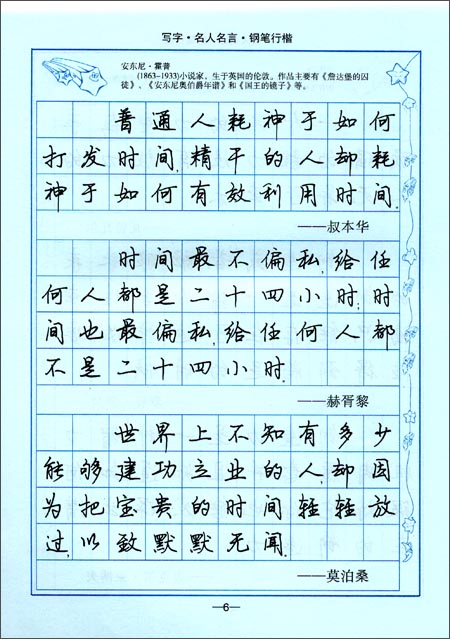 写字·名人名言·钢笔行楷
安东尼·霍普
(1863-1933)小说家，生于英国的伦敦。作品主要有《詹达堡的囚
徒》、《安东尼奥伯爵年谱》和《国王的镜子》等。
普通人耗神于如何
打发时间,精干的人却耗
神于如何有效利用时间.
——叔本华
时间最不偏私,给任
何人都是二十四小时;时
间也最偏私,给任何人都
不是二十四小时.
——赫胥黎
世界上不知有多少
能够建功立业的人,却因
为把宝贵的时间轻轻放
过,以致默默无闻.
——莫泊桑
—6—